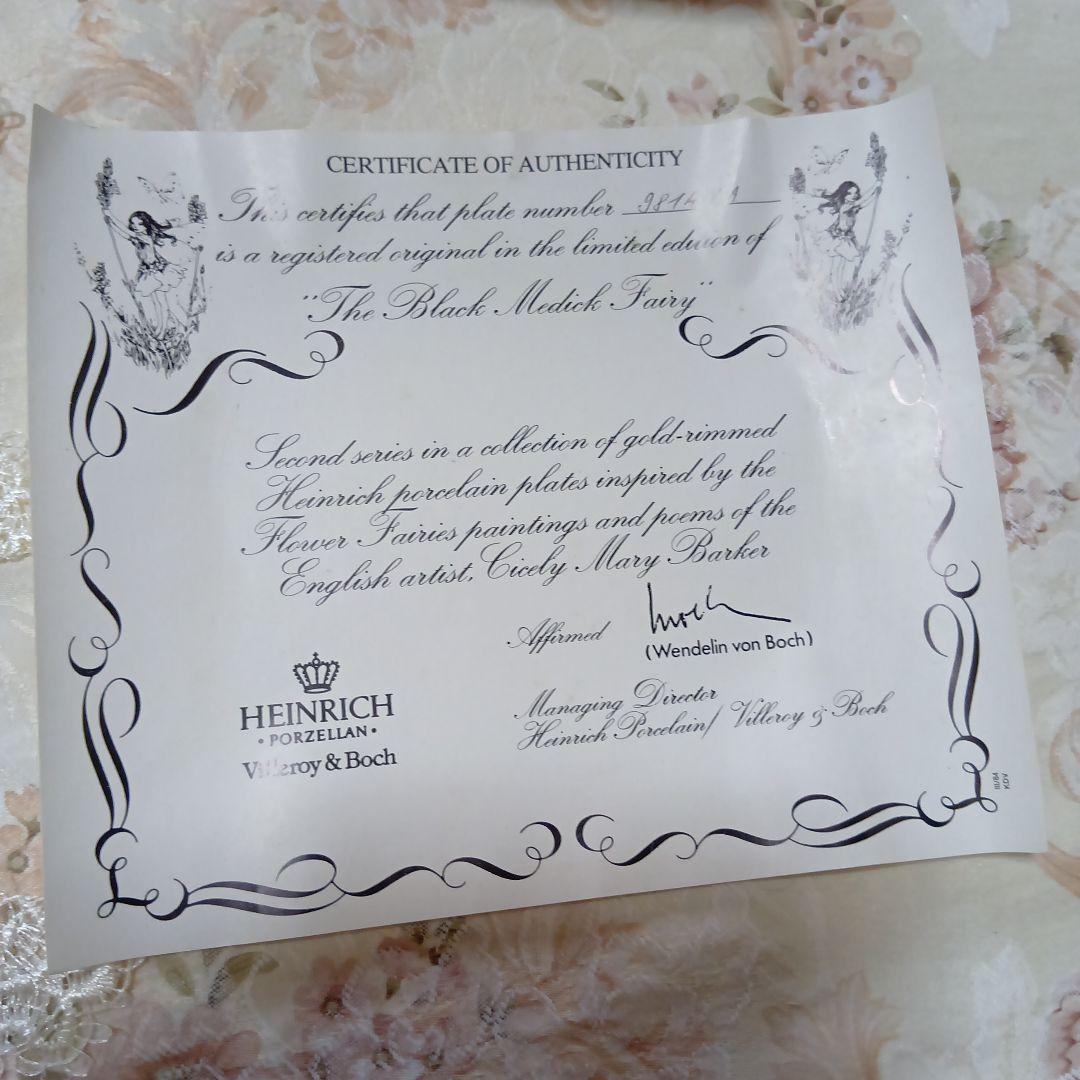 CERTIFICATE OF AUTHENTICITY
This certifies that plate number
is a registered original in the limited edition of
"The Black Medick Fairy"
Second series in a collection of gold-rimmed
Heinrich porcelain plates inspired by the
Flower Fairies paintings and poems of the
English artist, Cicely Mary Barker
Affirmed
(Wendelin von Boch)
Managing Director
Heinrich Porcelain/ Villeroy & Boch
HEINRICH
• PORZELLAN •
Villeroy & Boch
III/84
K.DV